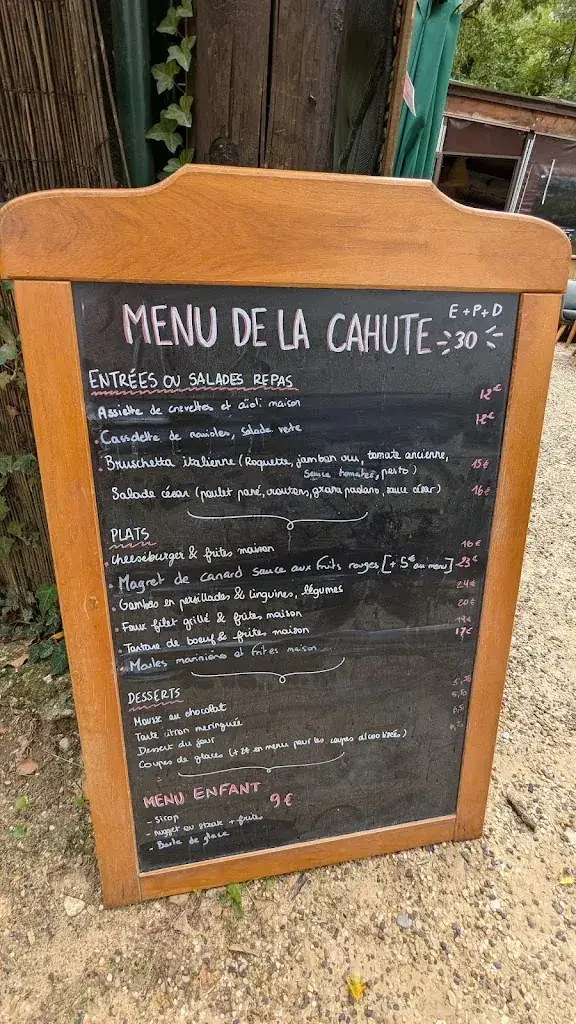 MENU DE LA CAHUTE
E+P+D
30
ENTRÉES OU SALADES REPAS
Assiette de crevettes et aïoli maison 12€
Cassolette de ravioles, salade verte 12€
Bruschetta italienne (Roquette, jambon cru, tomate ancienne,
sauce tomates, pesto) 15€
Salade césar (poulet pané, croutons, grana padano, sauce césar) 16€
PLATS
Cheeseburger & frites maison 16€
Magret de canard sauce aux fruits rouges [+5€ au menu] 23€
Gambas en persillades & linguines, légumes 24€
Faux filet grillé & frites maison 20€
Tartare de boeuf & frites maison
Moules marinière et frites maison 17€
DESSERTS
Mousse au chocolat
Tarte citron meringuée
Dessert du jour
Coupes de glaces (+2€ en menu pour les coupes alcoolisées)
MENU ENFANT 9€
- Sirop
- Nugget ou steak + frites
- Boule de glace